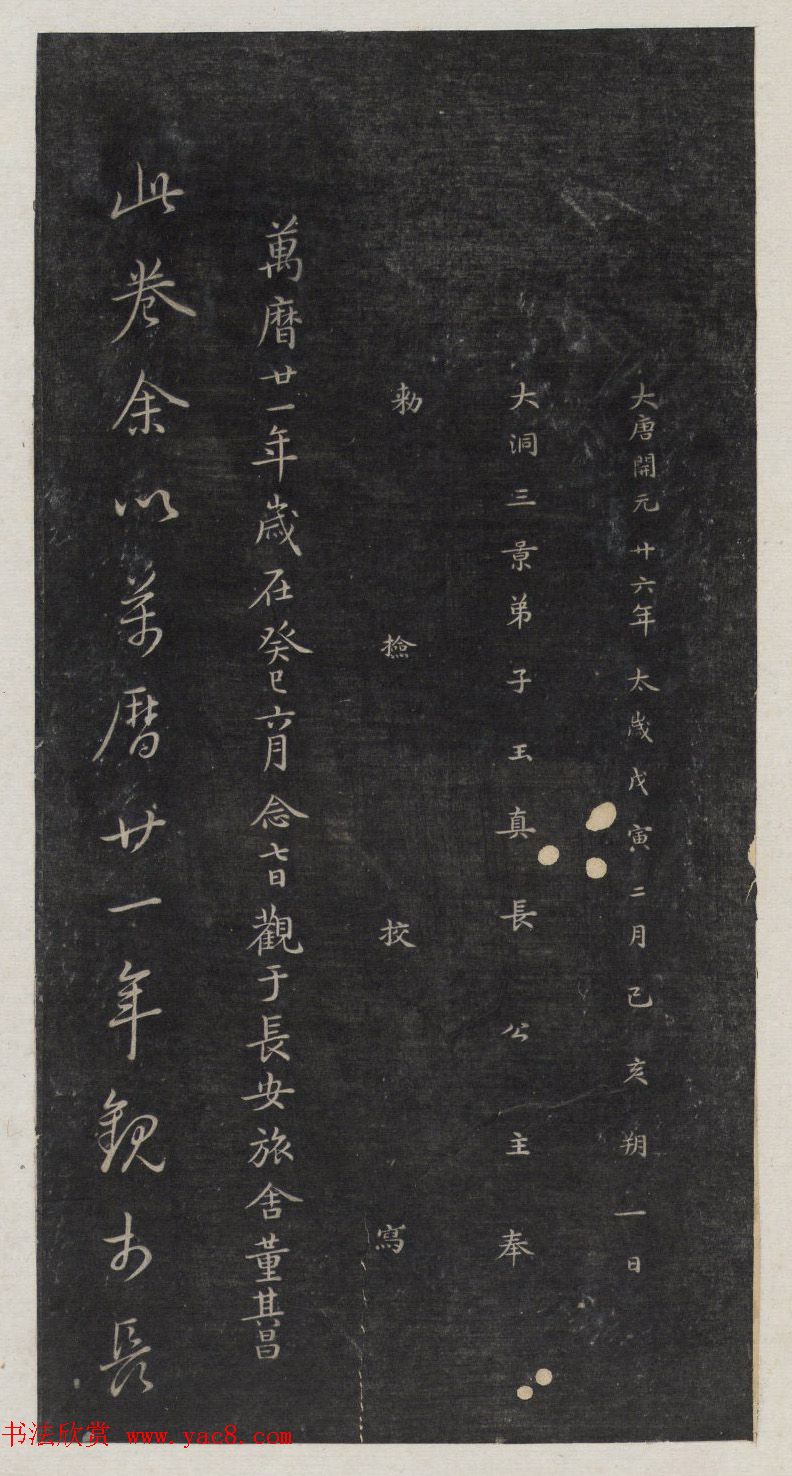 大唐開元廿六年太歲戊寅二月己亥朔一日
大洞三景弟子玉真長公主奉
勑檢校寫
萬曆廿一年歲在癸巳六月念七日觀于長安旅舍董其昌
此卷余以萬曆廿一年觀于長
书法欣赏 www.yac8.com